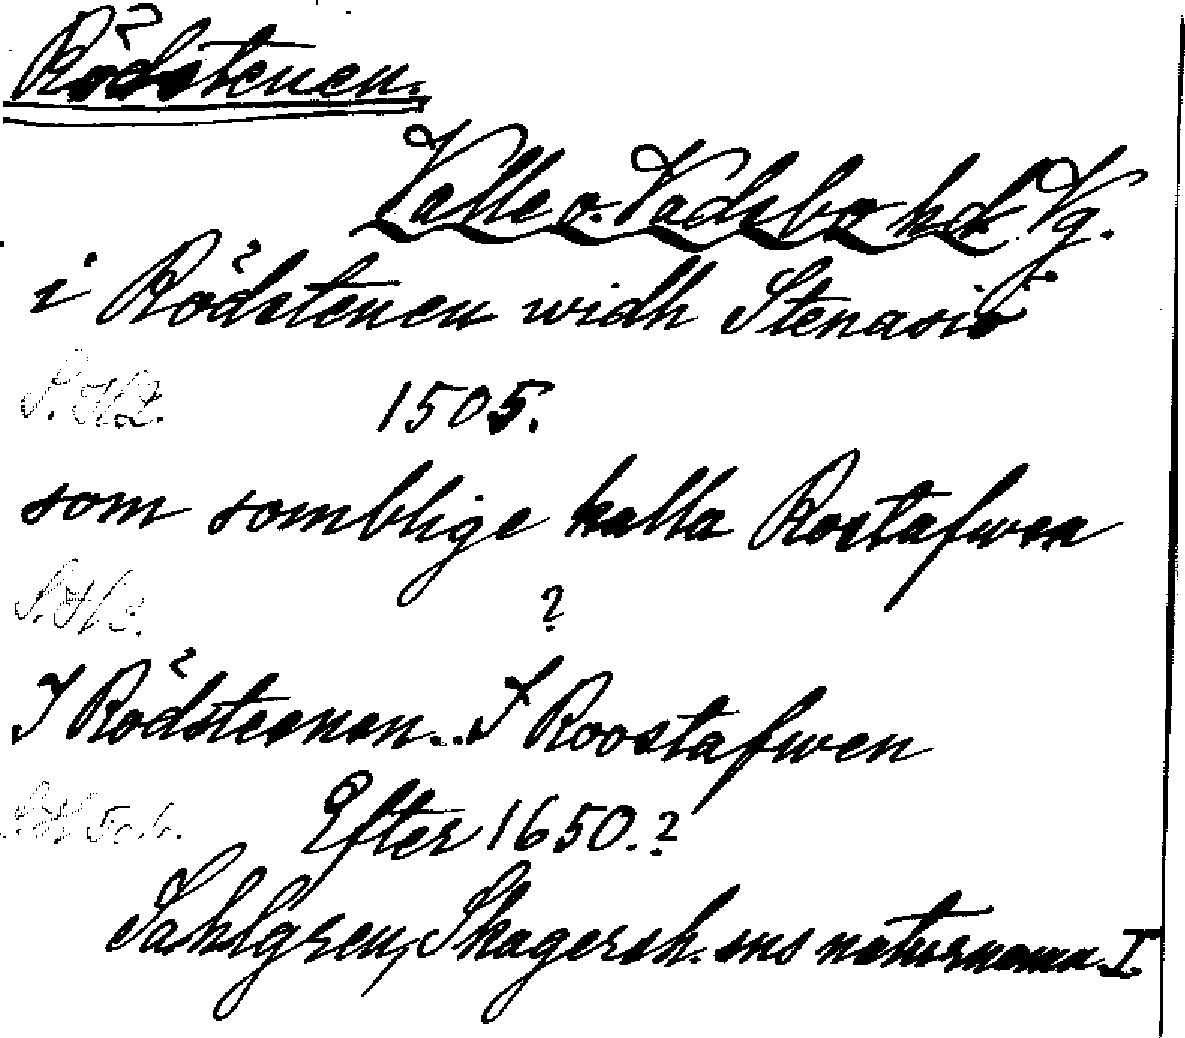 Rödstenen.
Valle o. Vadsbo hd Vg.
i Rödstenen widh Stenasiö
S. 42. 1505.
som somblige kalla Rostafwen
?
I Rödsteenen... I Roostafwen
Efter 1650.?
Sahlgren, Skagersh. sns naturnamn. I.